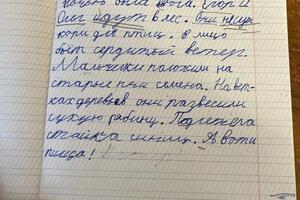 Олег идут в лес. Они несут
корм для птиц. в лицо
бьёт сердитый ветер.
Мальчики положили на
старые пни семена. На вет-
ках деревьев они развесили
сухую рябину. Подлетела
стайка синиц. А вот и
пища!